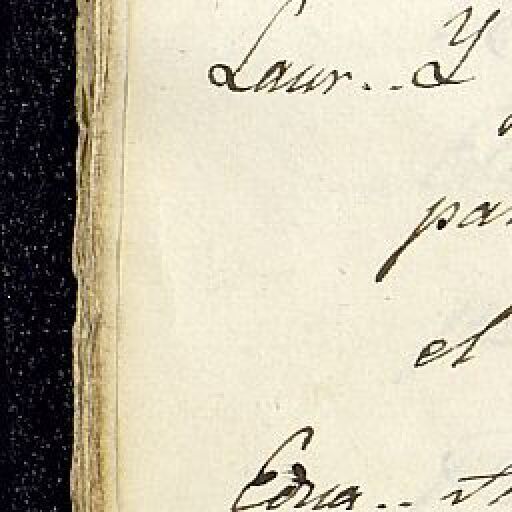 Laur.. Y
pa
el
Edua..